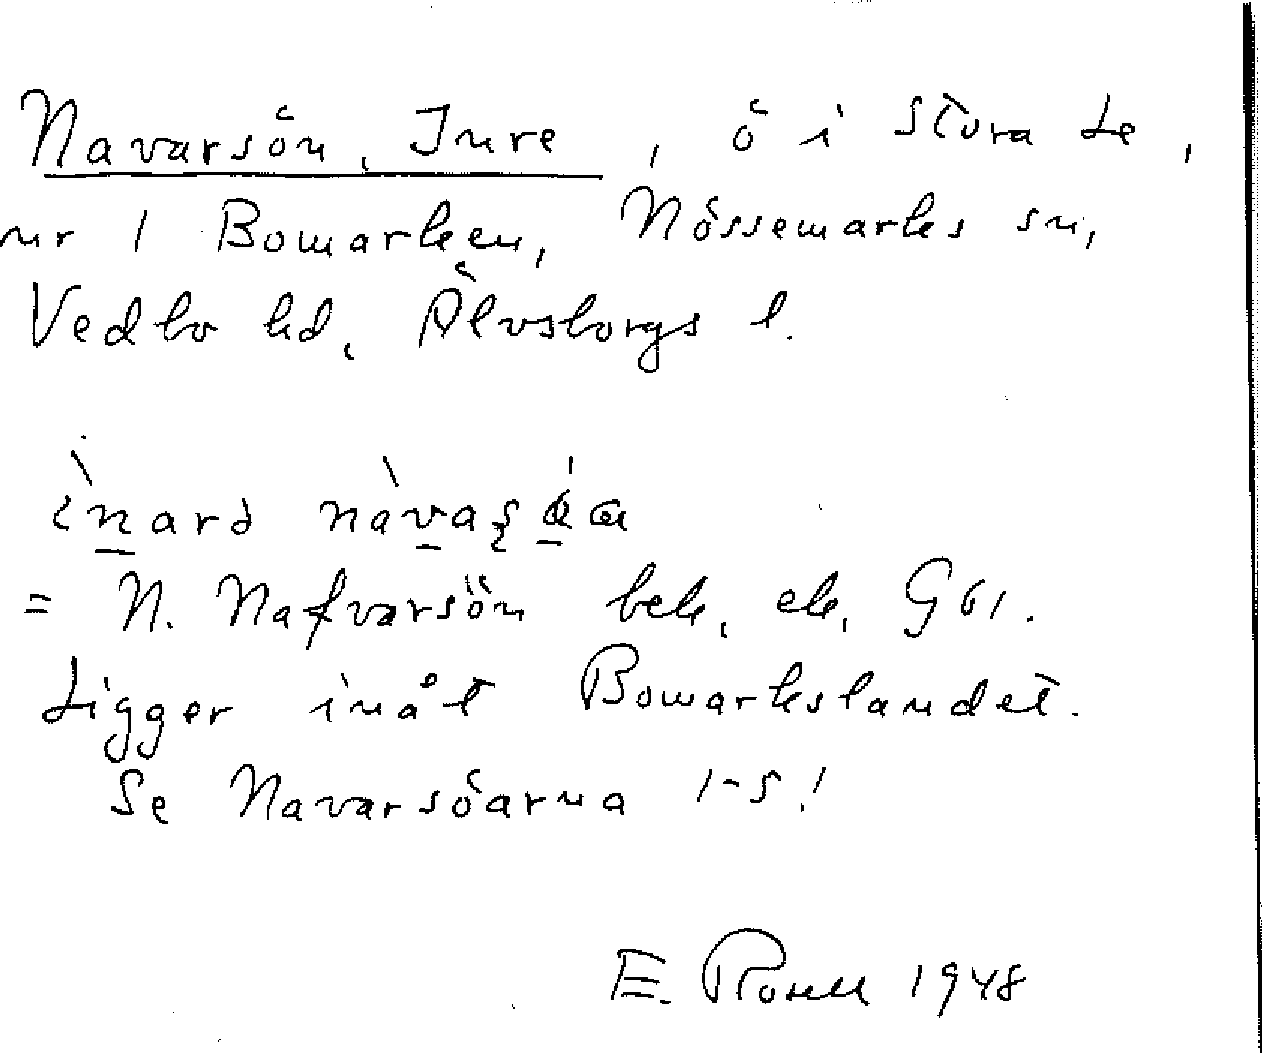 Navarsön, Inre, ö i Stora Le,
nr 1 Bomarken, Nössemarks sn,
Vedbo hd, Älvsborgs l.
= N. Nafvarsön bek. ek. G61.
Ligger inåt Bomarkslandet.
Se Navarsöarna 1-5!
E. Rosell 1948